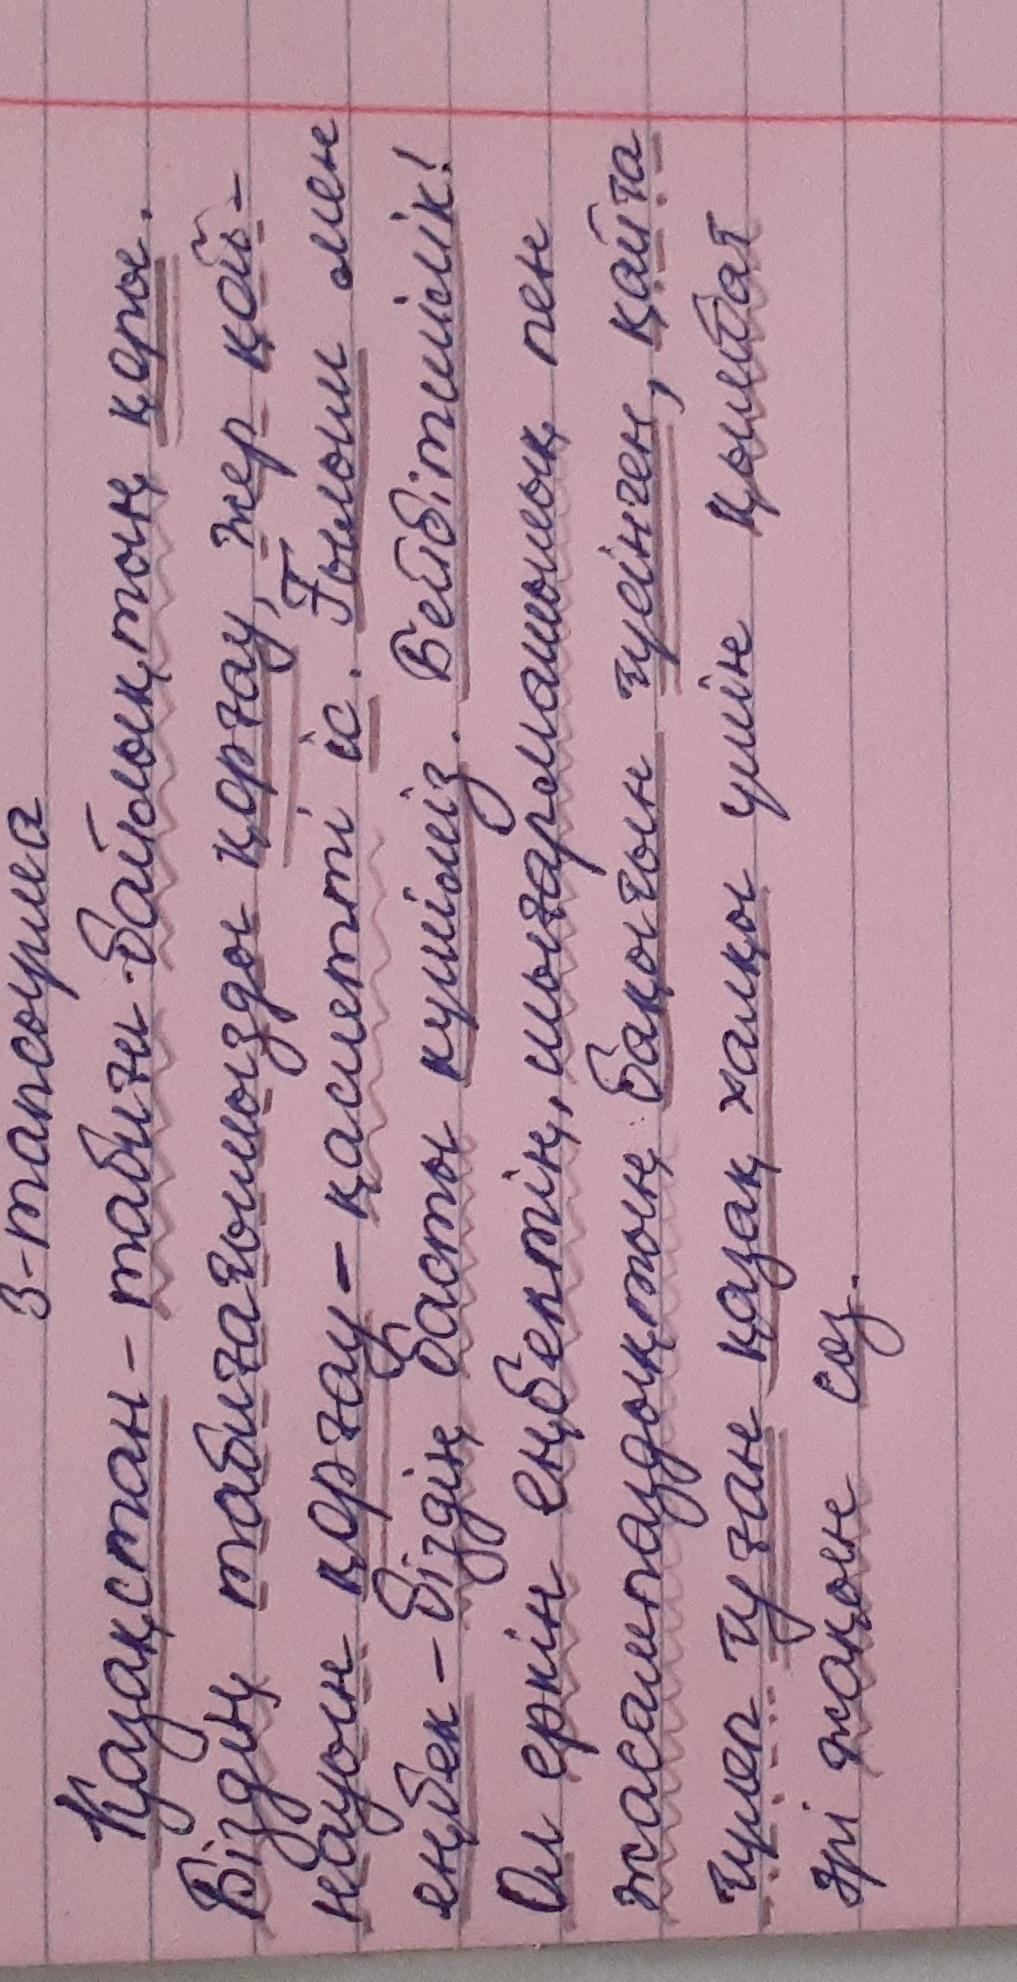 3-тапсырма
Қазақстан - табиғи байлықтың қоры.
Біздің табиғатымызды қорғау, жер қой-
науын қорғау - қасиетті іс. Ғылым мен
еңбек - біздің басты күшіміз. Бейбітшілік!
Ол еркін еңбектің, шығармашылық пен
жасампаздықтың бақытын түсінген, қайта
түлеп тұзан қазақ халқы үшін қымбат
әрі жақын сөз.